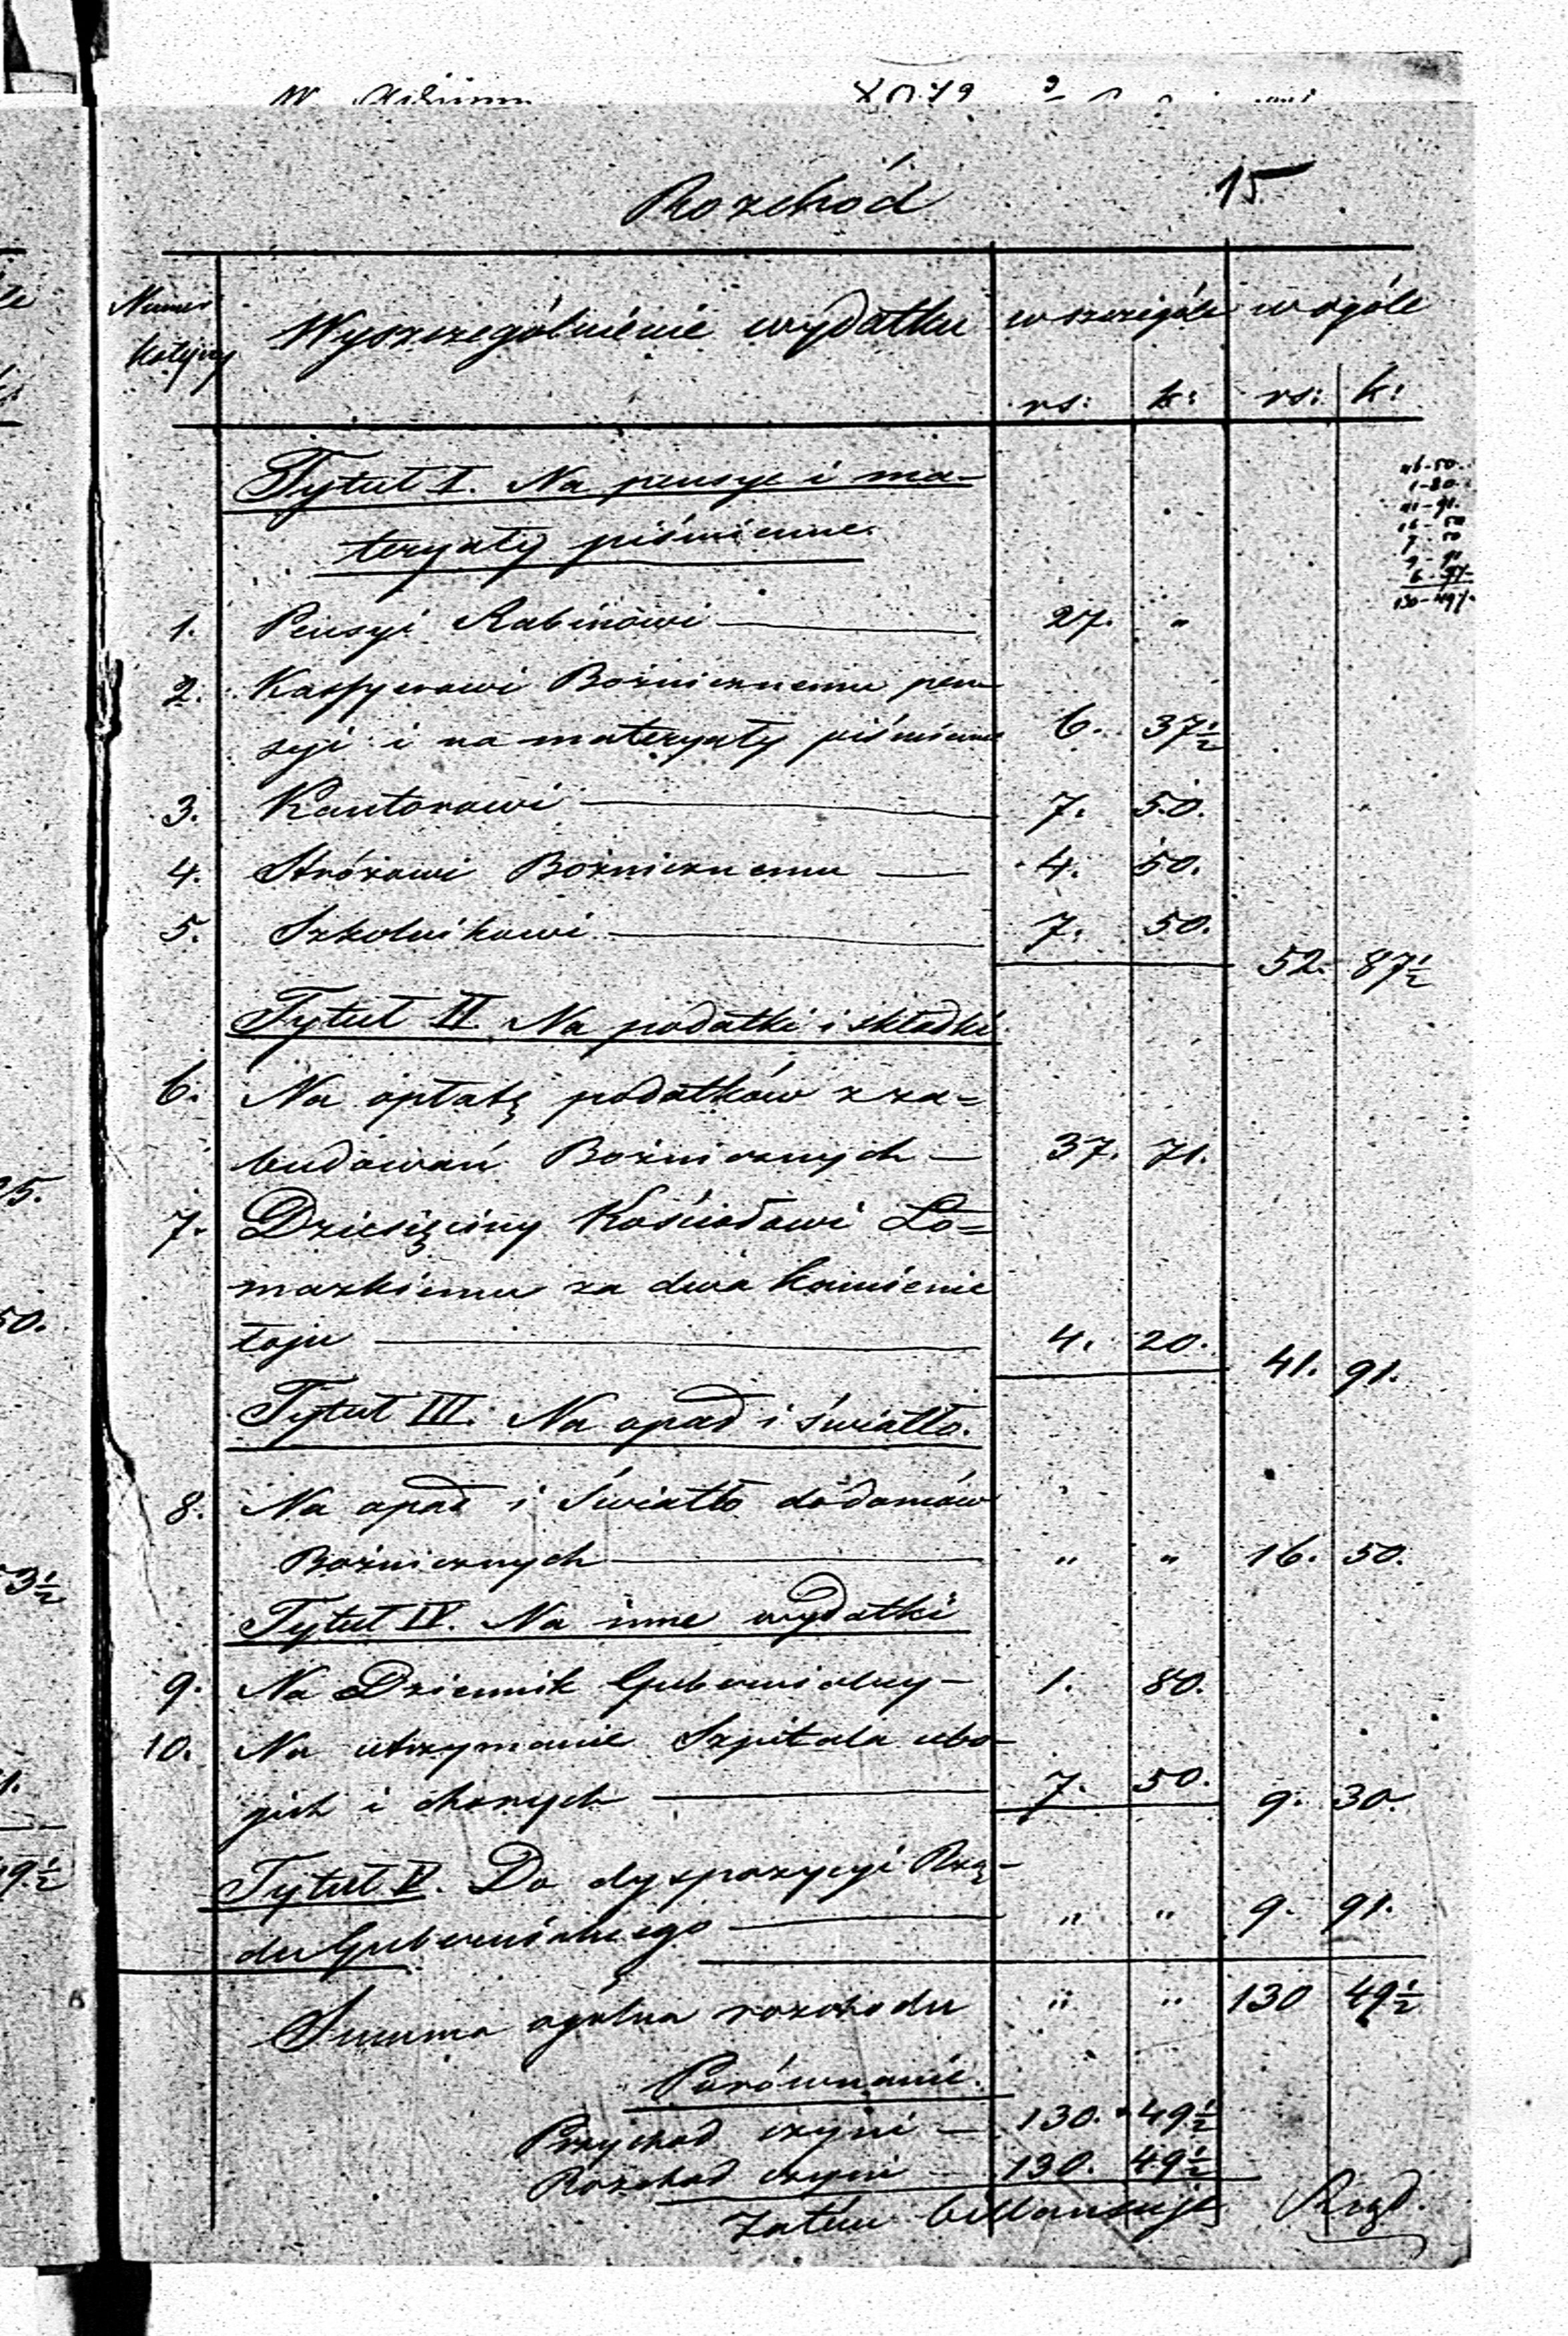 Rozchód
15
Numer
kolejny
Wyszczególnienie wydatku
w szczególe
w ogóle
rs: k: rs: k:
Tytuł I. Na pensye i ma=
teryały piśmienne.
1. Pensyi Rabinowi 27. "
2. Kassyerowi Bóżnicznemu pen=
syi i na materyały piśmienne 6. 37½
3. Kantorowi 7. 50.
4. Stróżowi Bożnicznemu 4. 50.
5. Szkolnikowi 7. 50.
52. 87½
Tytuł II. Na podatki i składki
6. Na opłatę podatków z za=
budowań Bożnicznych 37. 71.
7. Dziesięciny Kościołowi Ło=
mazkiemu za dwa kamienie
łoju 4. 20.
41. 91.
Tytuł III. Na opał i światło.
8. Na opał i światło do domów
Bożnicznych " " 16. 50.
Tytuł IV. Na inne wydatki
9. Na Dziennik Gubernialny 1. 80.
10. Na utrzymanie Szpitala ubo=
gich i chorych 7. 50. 9. 30.
Tytuł V. Do dyspozycyi Rzą=
du Gubernialnego " " 9. 91.
Summa ogólna rozchodu " " 130 49½
Porównanie.
Przychod czyni 130. 49½
Rozchod czyni 130. 49½
Zatém billansuje
1-80.
41-91.
16-50
7-50
130-49½